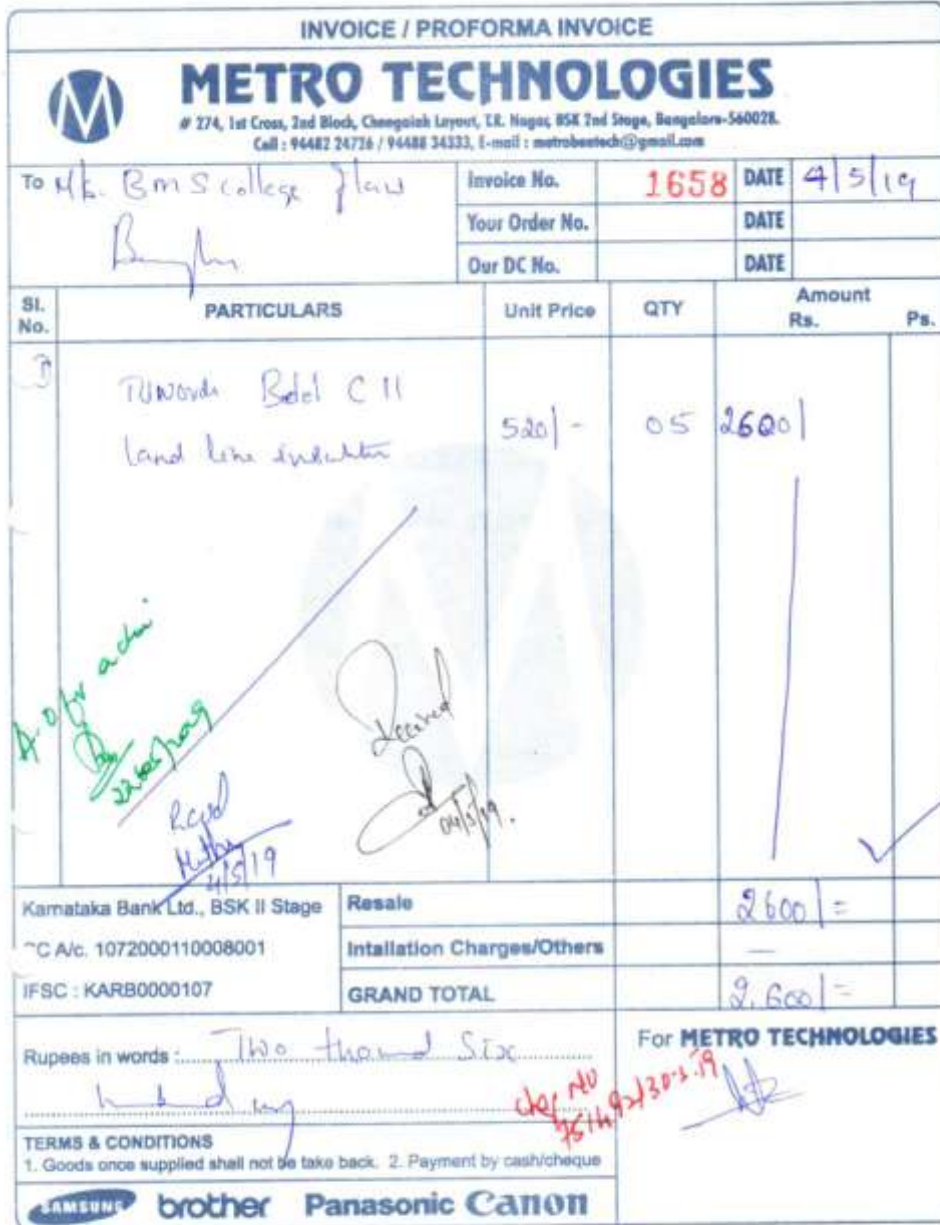 INVOICE / PROFORMA INVOICE
METRO TECHNOLOGIES
# 274, 1st Cross, 2nd Block, Chengaiah Layout, T.R. Nagar, BSK 2nd Stage, Bangalore-560028.
Call : 94482 24726 / 94488 34333, E-mail : metrobeetech@gmail.com
To M/s. BMS college law
Invoice No. 1658 DATE 4/5/19
Your Order No. DATE
Our DC No. DATE
Sl. No. PARTICULARS Unit Price QTY Amount Rs. Ps.
Towards Beetel C 11 520/- 05 2600/
land line
A.O for
Received
04/5/19.
Recd
4/5/19
Karnataka Bank Ltd., BSK II Stage Resale 2600/=
C A/c. 1072000110008001 Intallation Charges/Others —
IFSC : KARB0000107 GRAND TOTAL 2,600/=
Rupees in words : Two thousand Six
For METRO TECHNOLOGIES
TERMS & CONDITIONS
1. Goods once supplied shall not be take back. 2. Payment by cash/cheque
SAMSUNG brother Panasonic Canon